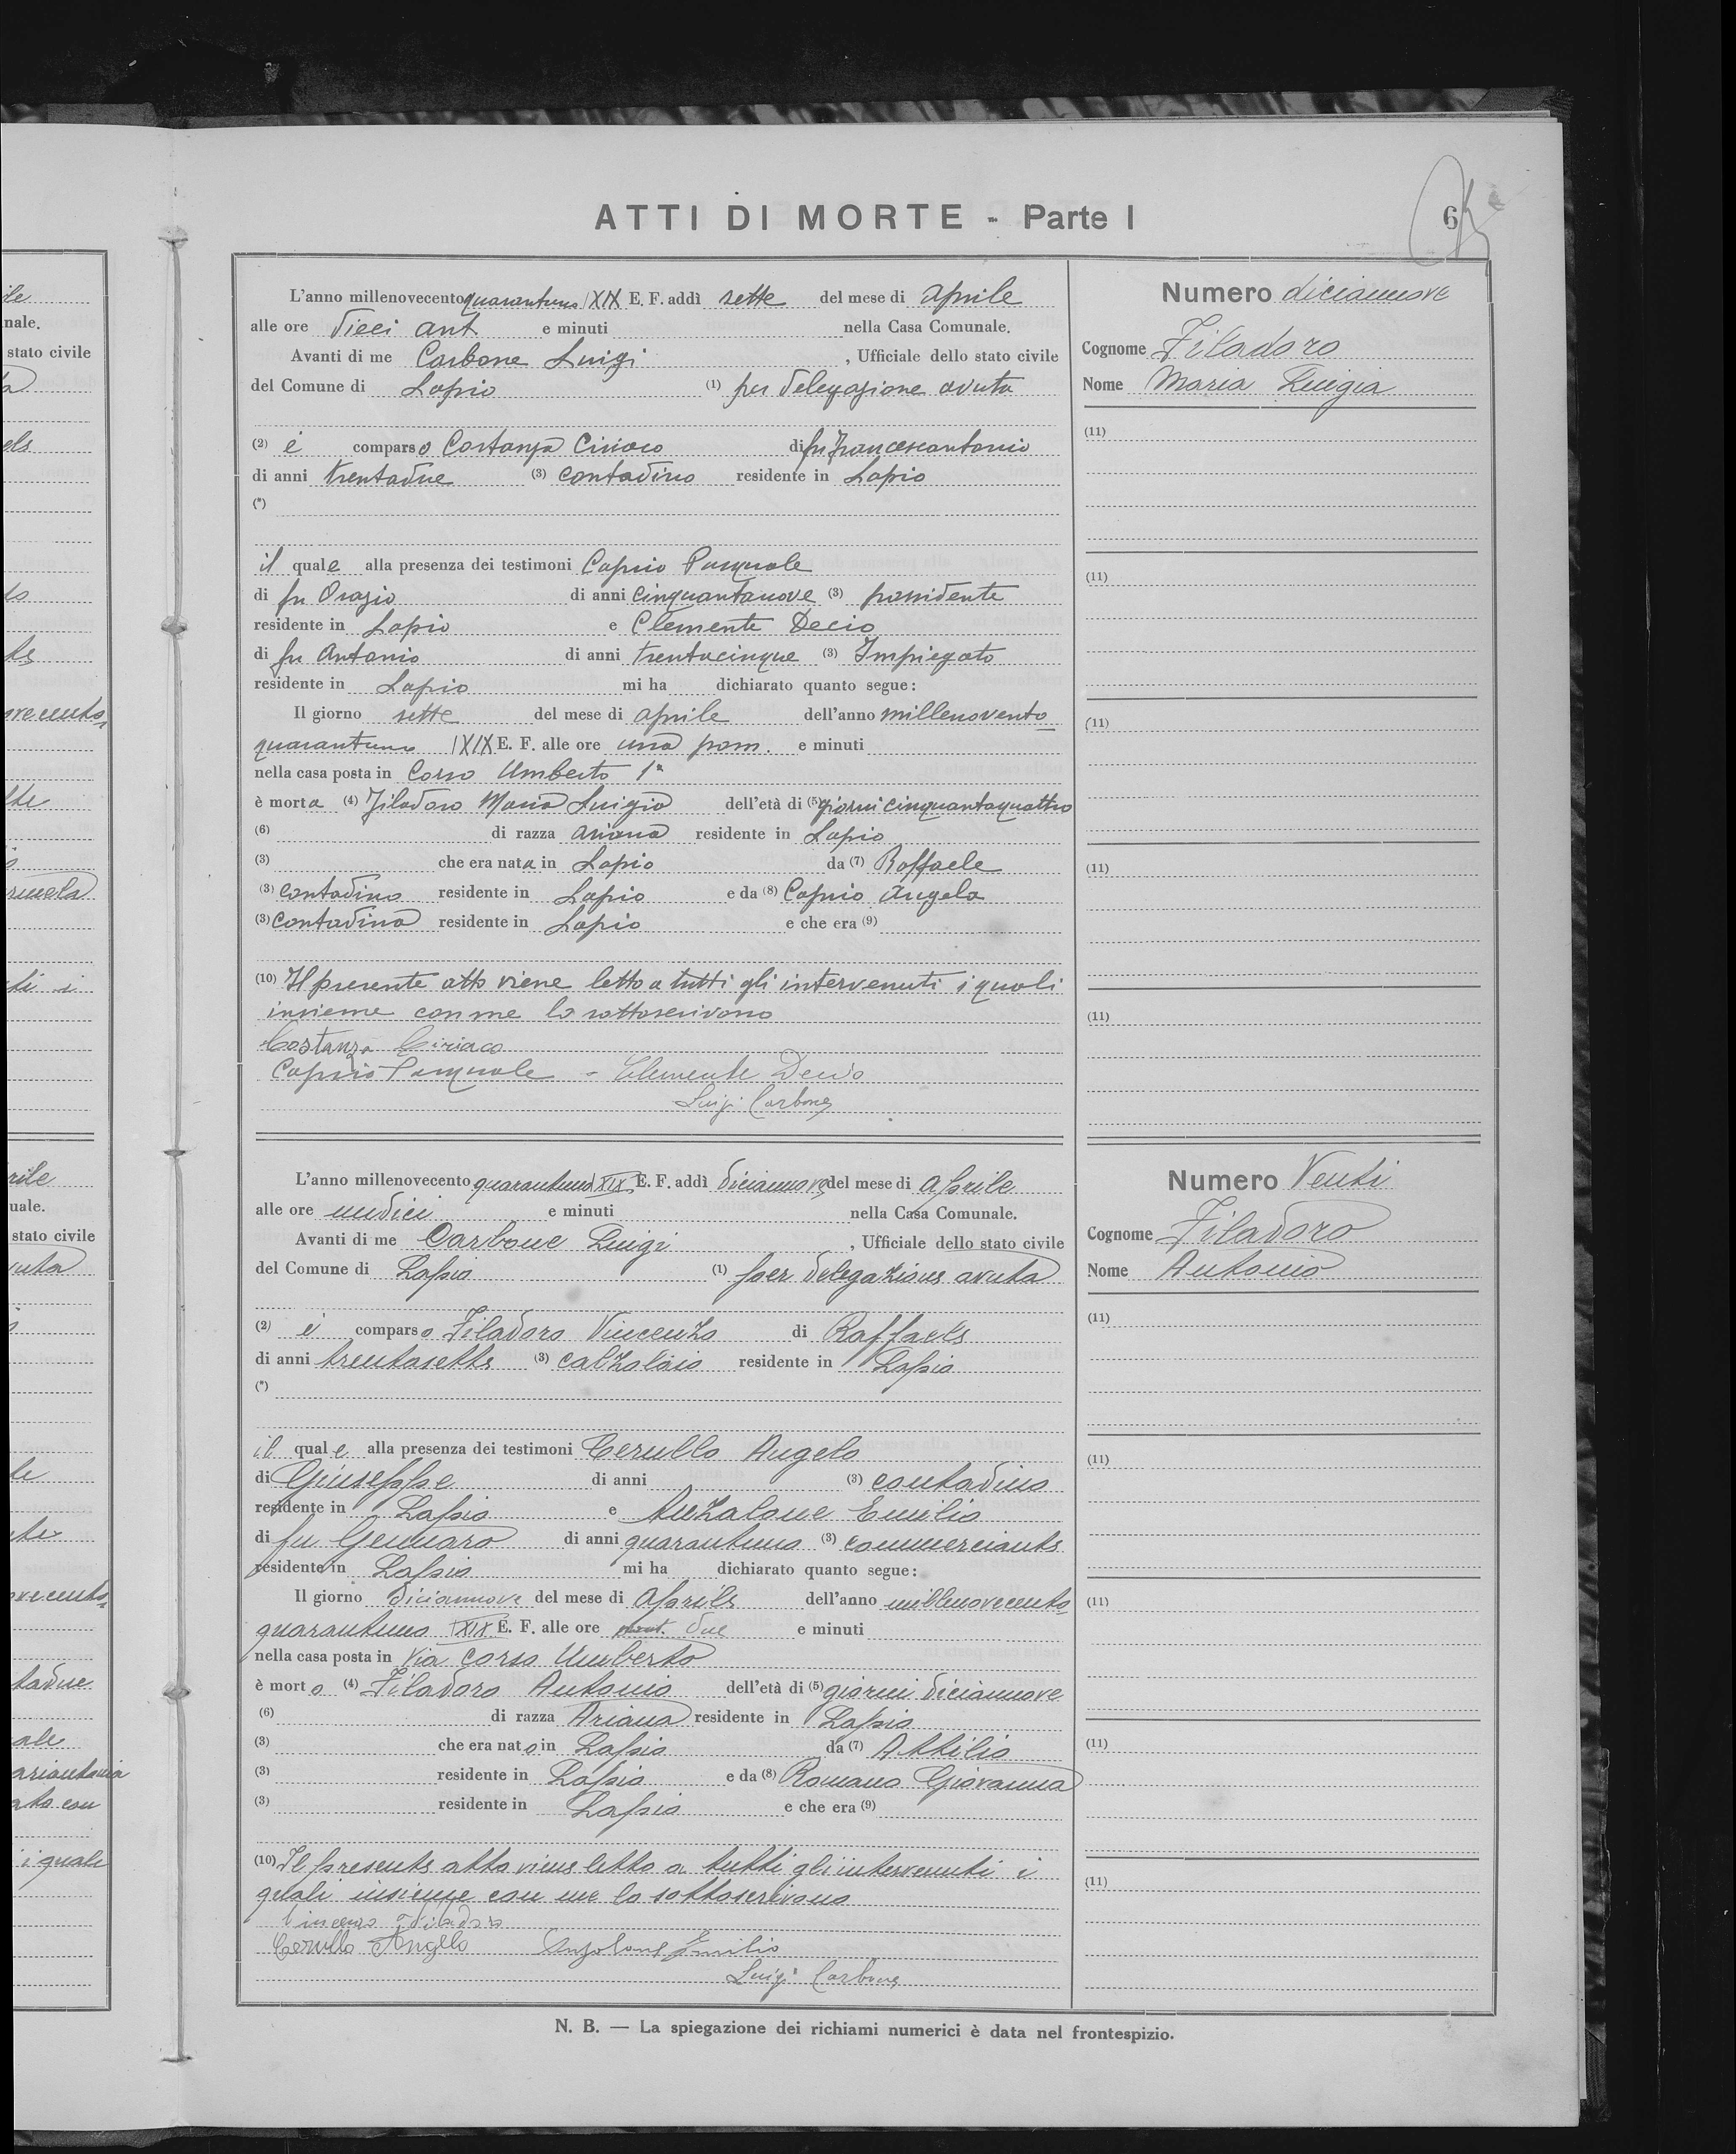 ATTI DI MORTE - Parte I
6
L'anno millenovecento quarantuno XIX E. F. addì sette del mese di aprile
alle ore dieci ant e minuti nella Casa Comunale.
Avanti di me Carbone Luigi , Ufficiale dello stato civile
del Comune di Lapio (1) per delegazione avuta
(2) è comparso Costanza Ciriaco di fu Francescantonio
di anni trentadue (3) contadino residente in Lapio
(*)
il quale alla presenza dei testimoni Caprio Pasquale
di fu Orazio di anni cinquantanove (3) possidente
residente in Lapio e Clemente Decio
di fu Antonio di anni trentacinque (3) Impiegato
residente in Lapio mi ha dichiarato quanto segue:
Il giorno sette del mese di aprile dell'anno millenovento
quarantuno XIX E. F. alle ore una pom. e minuti
nella casa posta in Corso Umberto 1°
è morta (4) Filadoro Maria Luigia dell'età di (5) giorni cinquantaquattro
(6) di razza ariana residente in Lapio
(3) che era nata in Lapio da (7) Raffaele
(3) contadino residente in Lapio e da (8) Caprio Angela
(3) contadina residente in Lapio e che era (9)
(10) Il presente atto viene letto a tutti gli intervenuti i quali
insieme con me lo sottoscrivono
Costanza Ciriaco
Caprio Pasquale - Clemente Decio
Luigi Carbone
Numero diciannove
Cognome Filadoro
Nome Maria Luigia
(11)
(11)
(11)
(11)
(11)
L'anno millenovecento quarantuno XIX E. F. addì diciannove del mese di Aprile
alle ore undici e minuti nella Casa Comunale.
Avanti di me Carbone Luigi , Ufficiale dello stato civile
del Comune di Lapio (1) per delegazione avuta
(2) è comparso Filadoro Vincenzo di Raffaele
di anni trentasette (3) calzolaio residente in Lapio
(*)
il quale alla presenza dei testimoni Cerullo Angelo
di Giuseppe di anni (3) contadino
residente in Lapio e Anzalone Emilio
di fu Gennaro di anni quarantuno (3) commerciante
residente in Lapio mi ha dichiarato quanto segue:
Il giorno diciannove del mese di Aprile dell'anno millenovecento
quarantuno XIX E. F. alle ore due e minuti
nella casa posta in Via Corso Umberto
è morto (4) Filadoro Antonio dell'età di (5) giorni diciannove
(6) di razza Ariana residente in Lapio
(3) che era nato in Lapio da (7) Attilio
(3) residente in Lapio e da (8) Romano Giovanna
(3) residente in Lapio e che era (9)
(10) Il presente atto viene letto a tutti gli intervenuti i
quali insieme con me lo sottoscrivono
Vincenzo Filadoro
Cerullo Angelo Anzalone Emilio
Luigi Carbone
Numero Venti
Cognome Filadoro
Nome Antonio
(11)
(11)
(11)
(11)
(11)
N. B. — La spiegazione dei richiami numerici è data nel frontespizio.